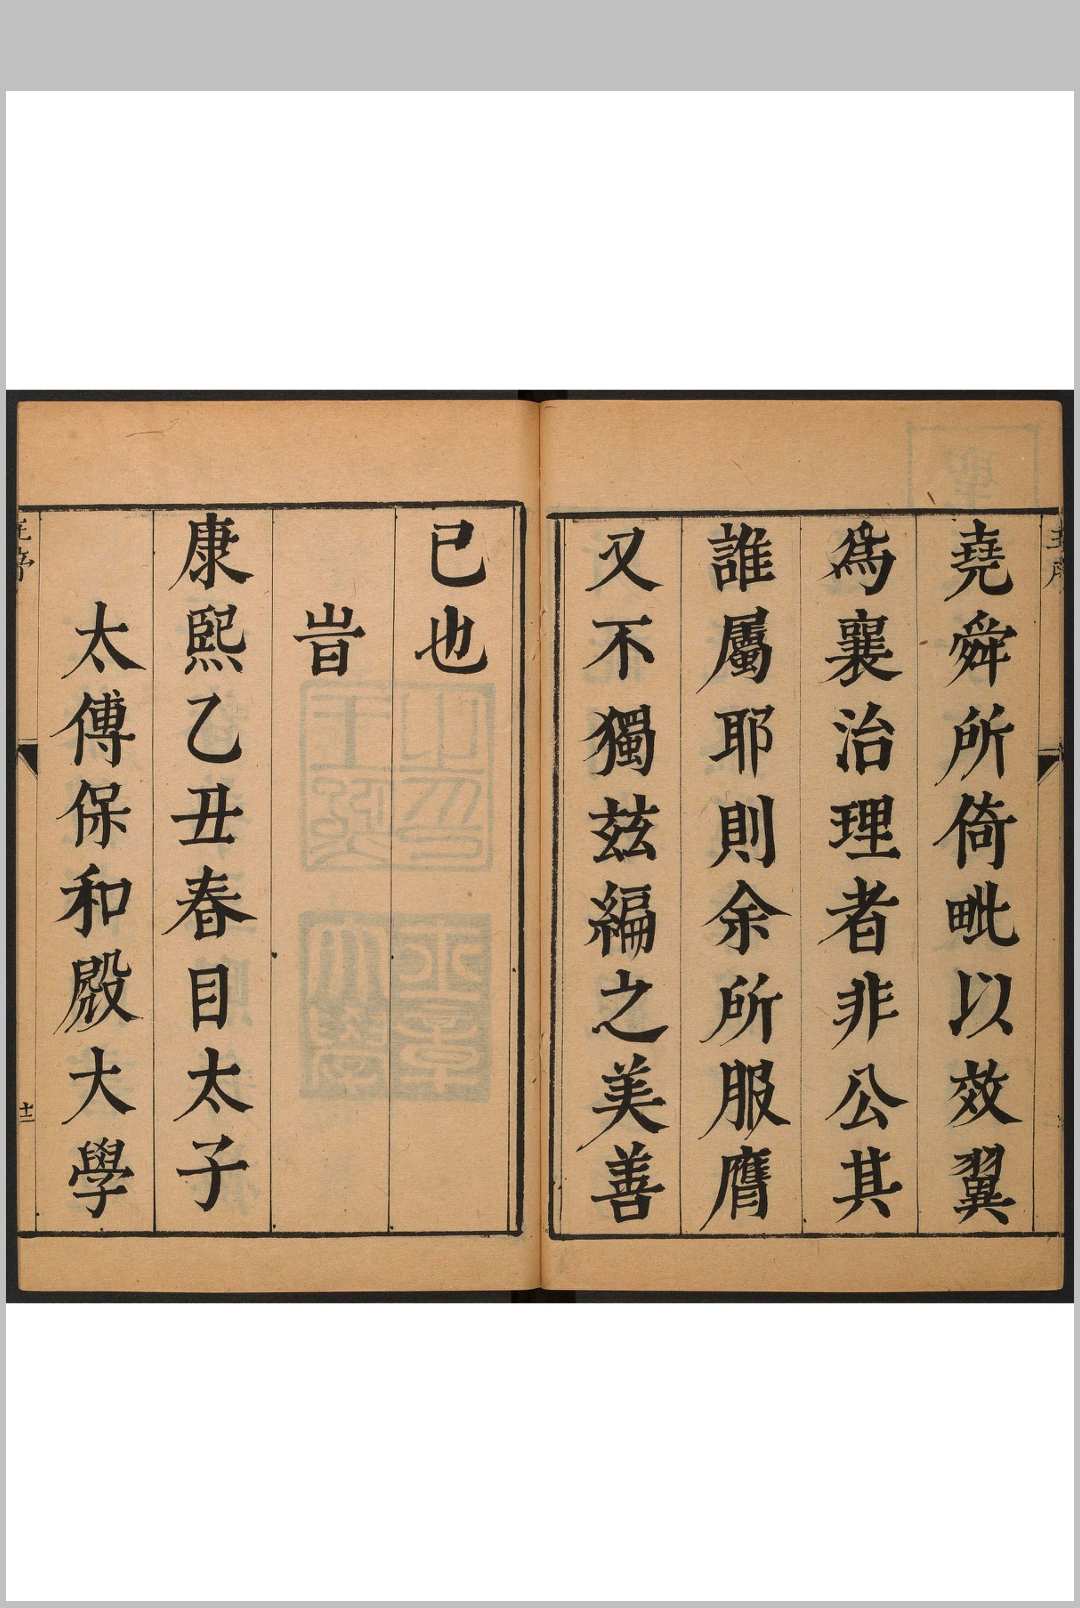 堯舜所倚毗以效翼
爲襄治理者非公其
誰屬耶則余所服膺
又不獨兹編之美善
已也
旹
康熙乙丑春目太子
太傅保和殿大學
十二